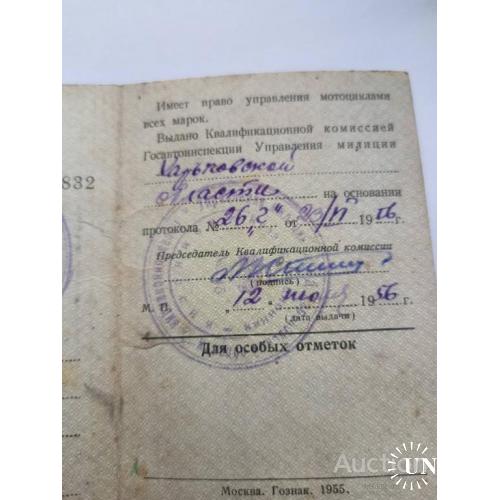 Имеет право управления мотоциклами
всех марок.
Выдано Квалификационной комиссией
Госавтоинспекции Управления милиции
Харьковской
832
области на основании
протокола № 26 "2" от 29/VI 1956г.
Председатель Квалификационной комиссии
(подпись)
М. П. „12" июля 1956 г.
(дата выдачи)
Для особых отметок
Москва. Гознак. 1955.
Auction
UN